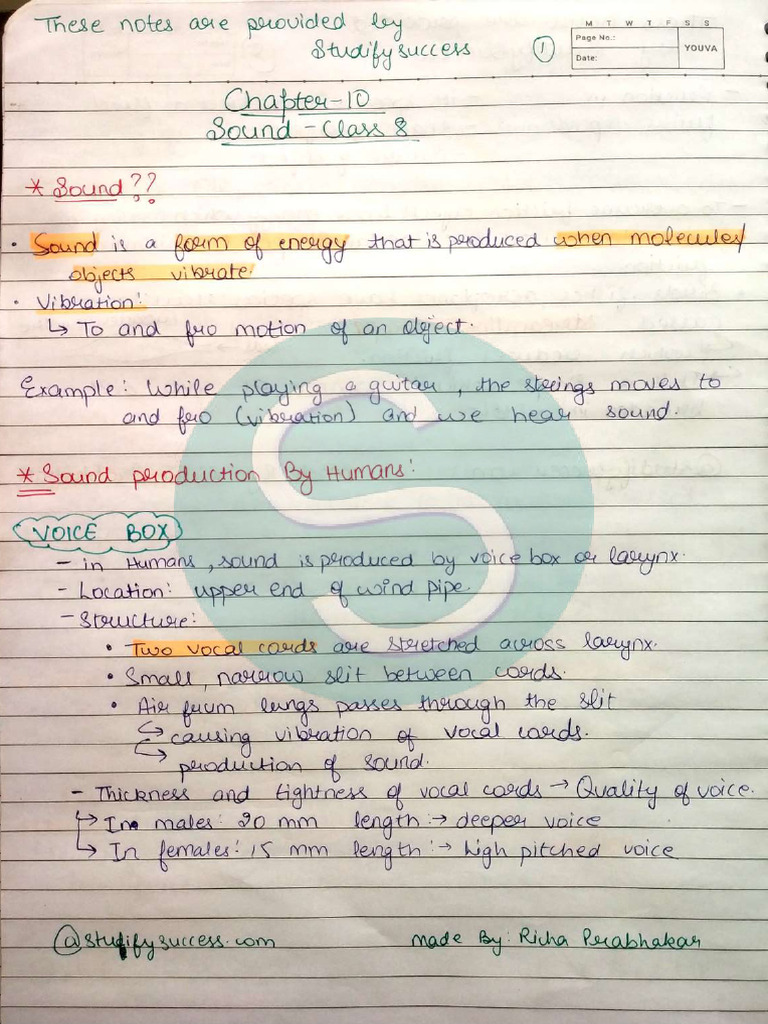 These notes are provided by
Studifysuccess
1
M T W T F S S
Page No.:
Date:
YOUVA
Chapter-10
Sound - Class 8
* Sound??
• Sound is a form of energy that is produced when molecules/
objects vibrate.
• Vibration:
↳ To and fro motion of an object.
Example: While playing a guitar, the strings moves to
and fro (vibration) and we hear sound.
* Sound production By Humans:
VOICE BOX
- in Humans, sound is produced by voice box or larynx.
- Location: upper end of wind pipe.
- Structure:
• Two vocal cords are stretched across larynx.
• Small, narrow slit between cords.
• Air from lungs passes through the slit
↳ causing vibration of vocal cords.
↳ production of sound.
- Thickness and tightness of vocal cords → Quality of voice.
↳ In males: 20 mm length :→ deeper voice
↳ In females: 15 mm length :→ high pitched voice
@studifysuccess.com
made By: Richa Prabhakar